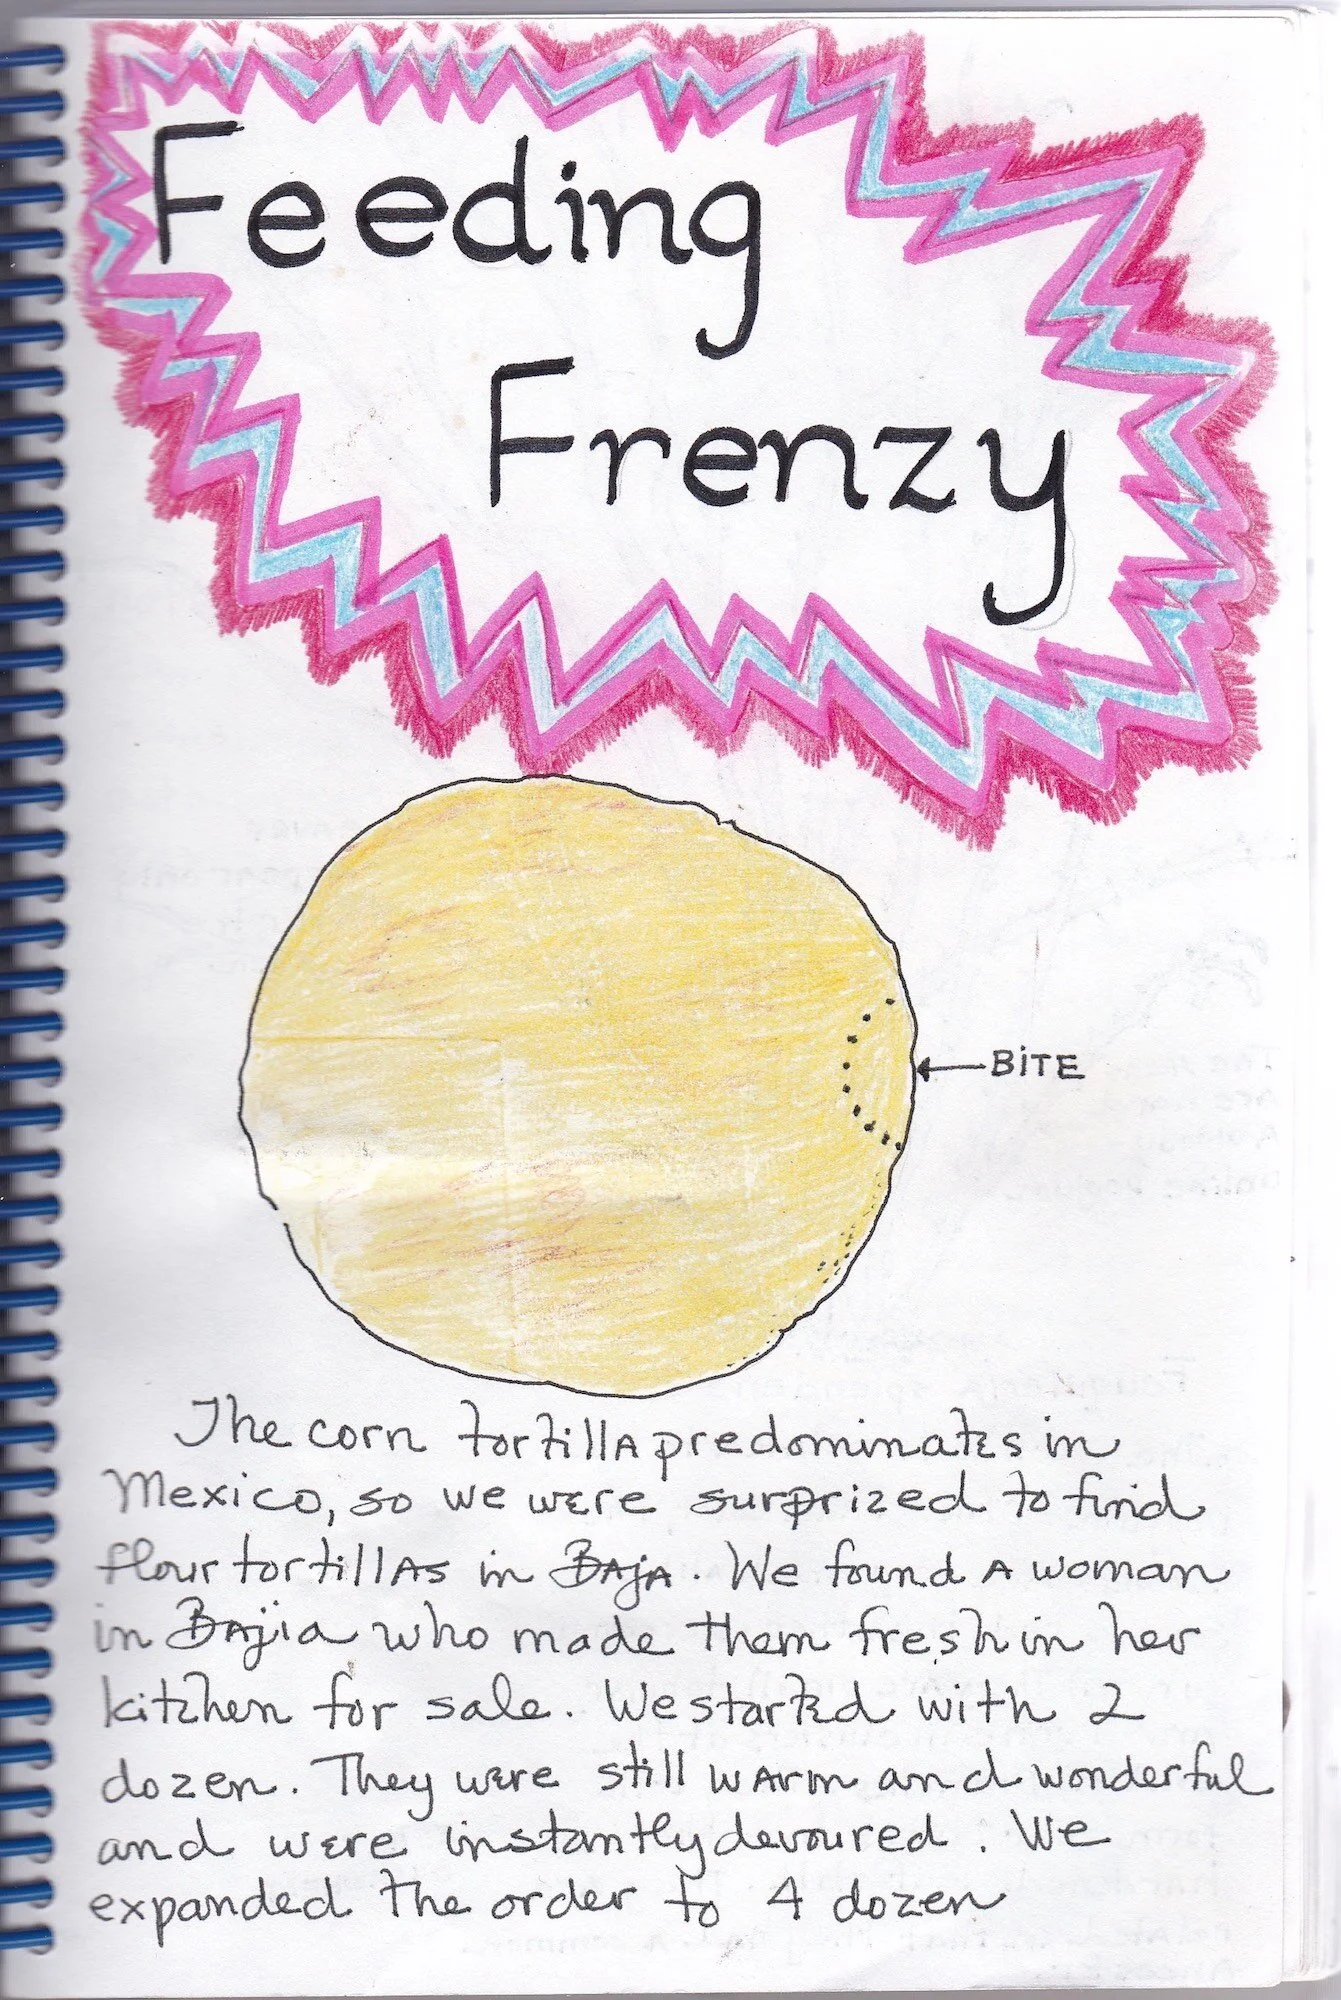 Feeding
Frenzy
BiTE
The corn tortilla predominates in
Mexico, so we were surprized to find
flour tortillas in Baja. We found a woman
in Bajia who made them fresh in her
kitchen for sale. We started with 2
dozen. They were still warm and wonderful
and were instantly devoured. We
expanded the order to 4 dozen